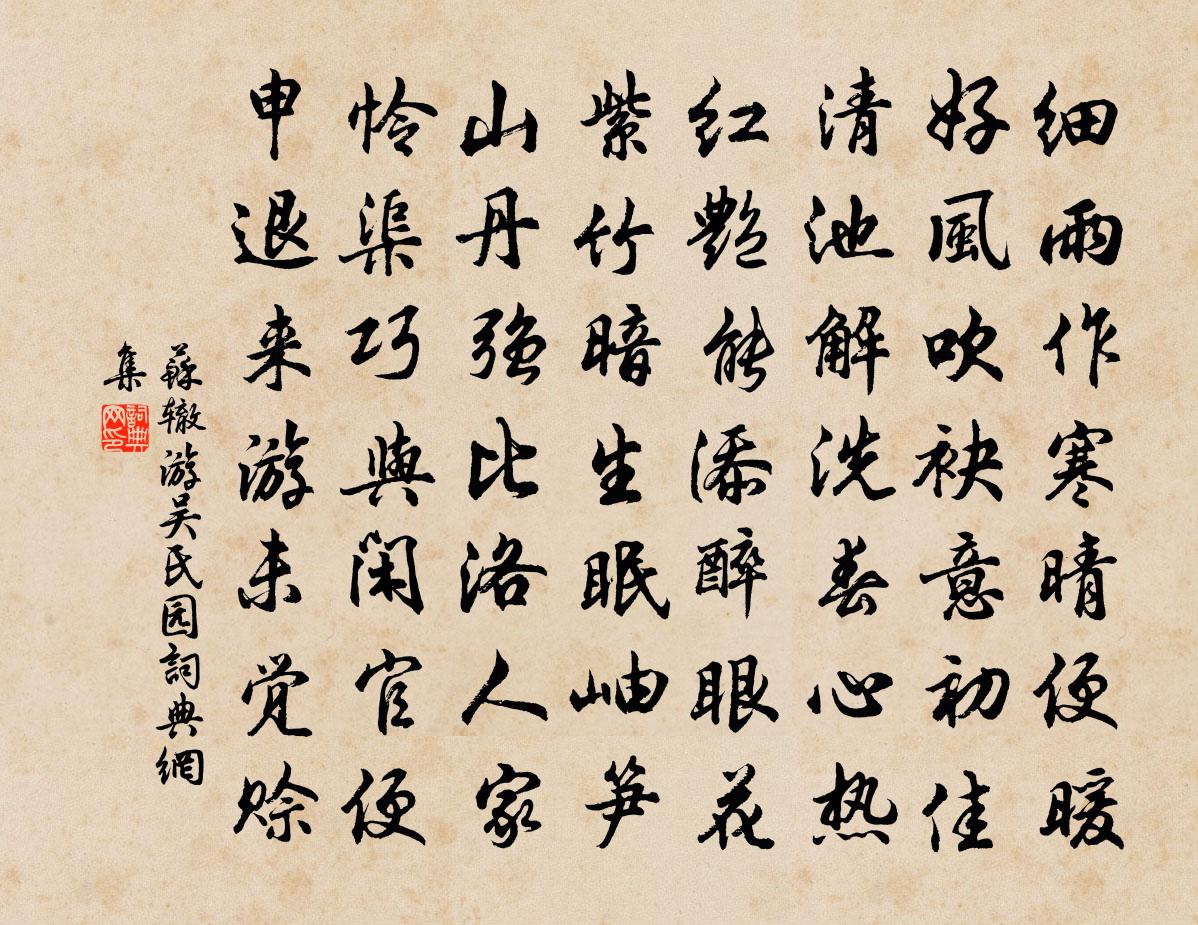 细雨作寒晴便暖
好風吹袂意初佳
清池解洗春心热
红艷能添醉眼花
紫竹暗生眠岫笋
山丹强比洛人家
怜渠巧與閑官便
申退来游未觉赊
蘇辙游吴氏园詞典網
集
詞典网印